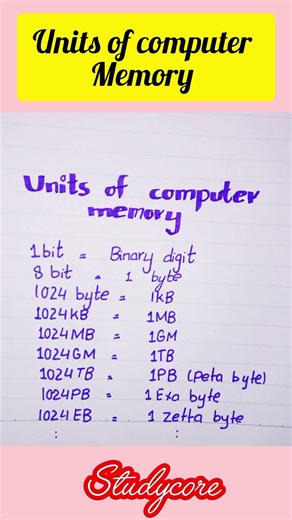 Units of computer
Memory
Units of computer
memory
1 bit = Binary digit
8 bit = 1 byte
1024 byte = 1KB
1024 KB = 1MB
1024 MB = 1GM
1024 GM = 1TB
1024 TB = 1PB (Peta byte)
1024 PB = 1 Exa byte
1024 EB = 1 Zetta byte
: :
Studycore